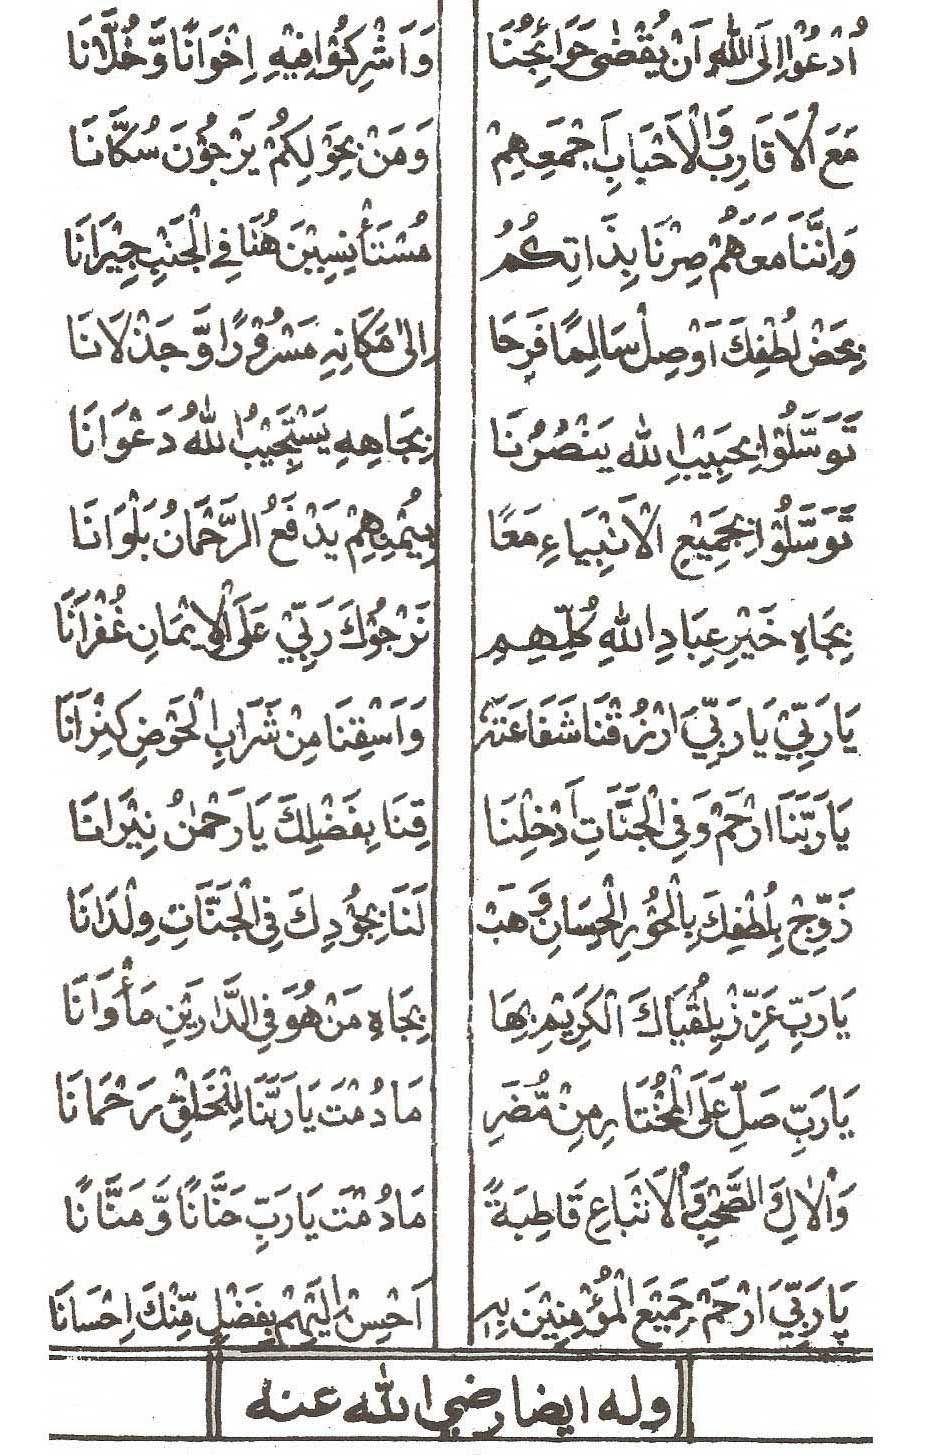 اُدْعُوْا اِلَى اللهِ اَنْ يُقْضٰى حَوَائِجُنَا وَاَشْرِكُوْا فِيْهِ اِخْوَانًا وَّخُلَّانَا
مَعَ الْاَقَارِبِ وَالْاَحْبَابِ اَجْمَعِهِمْ وَمَنْ بِحَوْلِكُمْ يَرْجُوْنَ سُكَّانَنَا
وَاِنَّنَا مَعَهُمْ صِرْنَا بِذَاتِكُمُ مُسْتَأْنِسِيْنَ هُنَا فِي الْجَنْبِ جِيْرَانَا
بِمَحْضِ لُطْفِكَ اَوْصِلْ سَالِمًا فَرِحًا اِلٰى مَكَانِهِ مَسْرُوْرًا وَّجَذْلَانَا
تَوَسَّلُوْا بِحَبِيْبِ اللهِ يَنْصُرُنَا بِجَاهِهِ يَسْتَجِيْبُ اللهُ دَعْوَانَا
تَوَسَّلُوْا بِجَمِيْعِ الْاَنْبِيَاءِ مَعًا بِيُمْنِهِمْ يَدْفَعُ الرَّحْمَانُ بَلْوَانَا
بِجَاهِ خَيْرِ عِبَادِ اللهِ كُلِّهِمِ نَرْجُوْكَ رَبِّيْ عَلَى الْاِيْمَانِ غُفْرَانَا
يَارَبِّيْ يَارَبِّيَ ارْزُقْنَا شَفَاعَتَهُ وَاَسْقِنَا مِنْ شَرَابِ الْحَوْضِ كِيْزَانَا
يَارَبَّنَا ارْحَمْ وَفِي الْجَنَّاتِ اَدْخِلْنَا قِنَا بِفَضْلِكَ يَارَحْمٰنُ نِيْرَانَا
زَوِّجْ بِلُطْفِكَ بِالْحُوْرِ الْحِسَانِ وَهَبْ لَنَا بِجُوْدِكَ فِي الْجَنَّاتِ وِلْدَانَا
يَارَبِّ عَزِّزْ بِلُقْيَاكَ الْكَرِيْمِ بِهَا بِجَاهِ مَنْ هُوَ فِي الدَّارَيْنِ مَأْوَانَا
يَارَبِّ صَلِّ عَلَى الْمُخْتَارِ مِنْ مُّضَرِ مَادُمْتَ يَارَبَّنَا لِلْخَلْقِ رَحْمَانَا
وَالْاٰلِ وَالصَّحْبِ وَالْاَتْبَاعِ قَاطِبَةً مَادُمْتَ يَارَبِّ حَنَّانًا وَّمَنَّانًا
يَارَبِّيَ ارْحَمْ جَمِيْعَ الْمُؤْمِنِيْنَ بِهِ اَحْسِنْ اِلَيْهِمْ بِفَضْلٍ مِّنْكَ اِحْسَانَا
وله ايضا رضي الله عنه